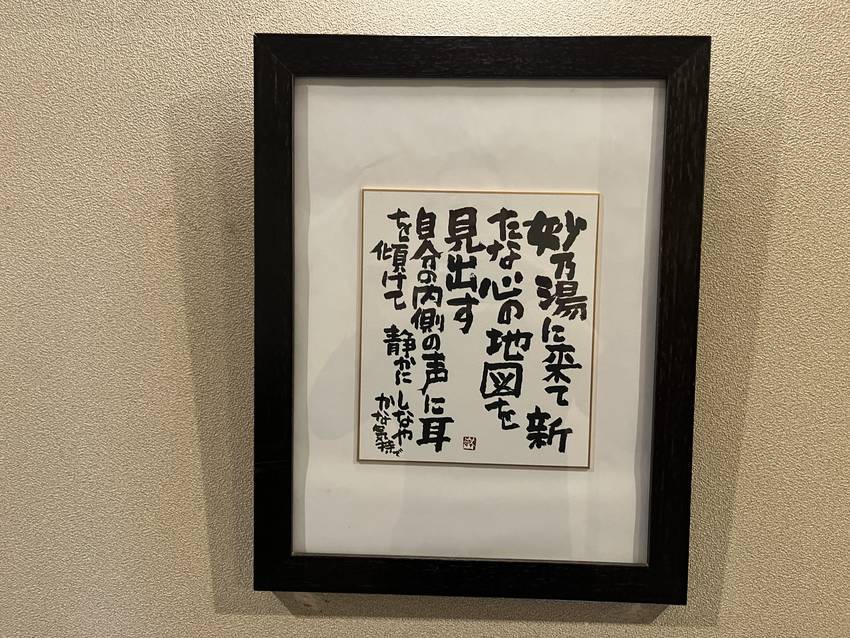 妙乃湯に来て 新
たな心の地図を
見出す
自分の内側の声に耳
を傾けて 静かに しなや
かな気持で